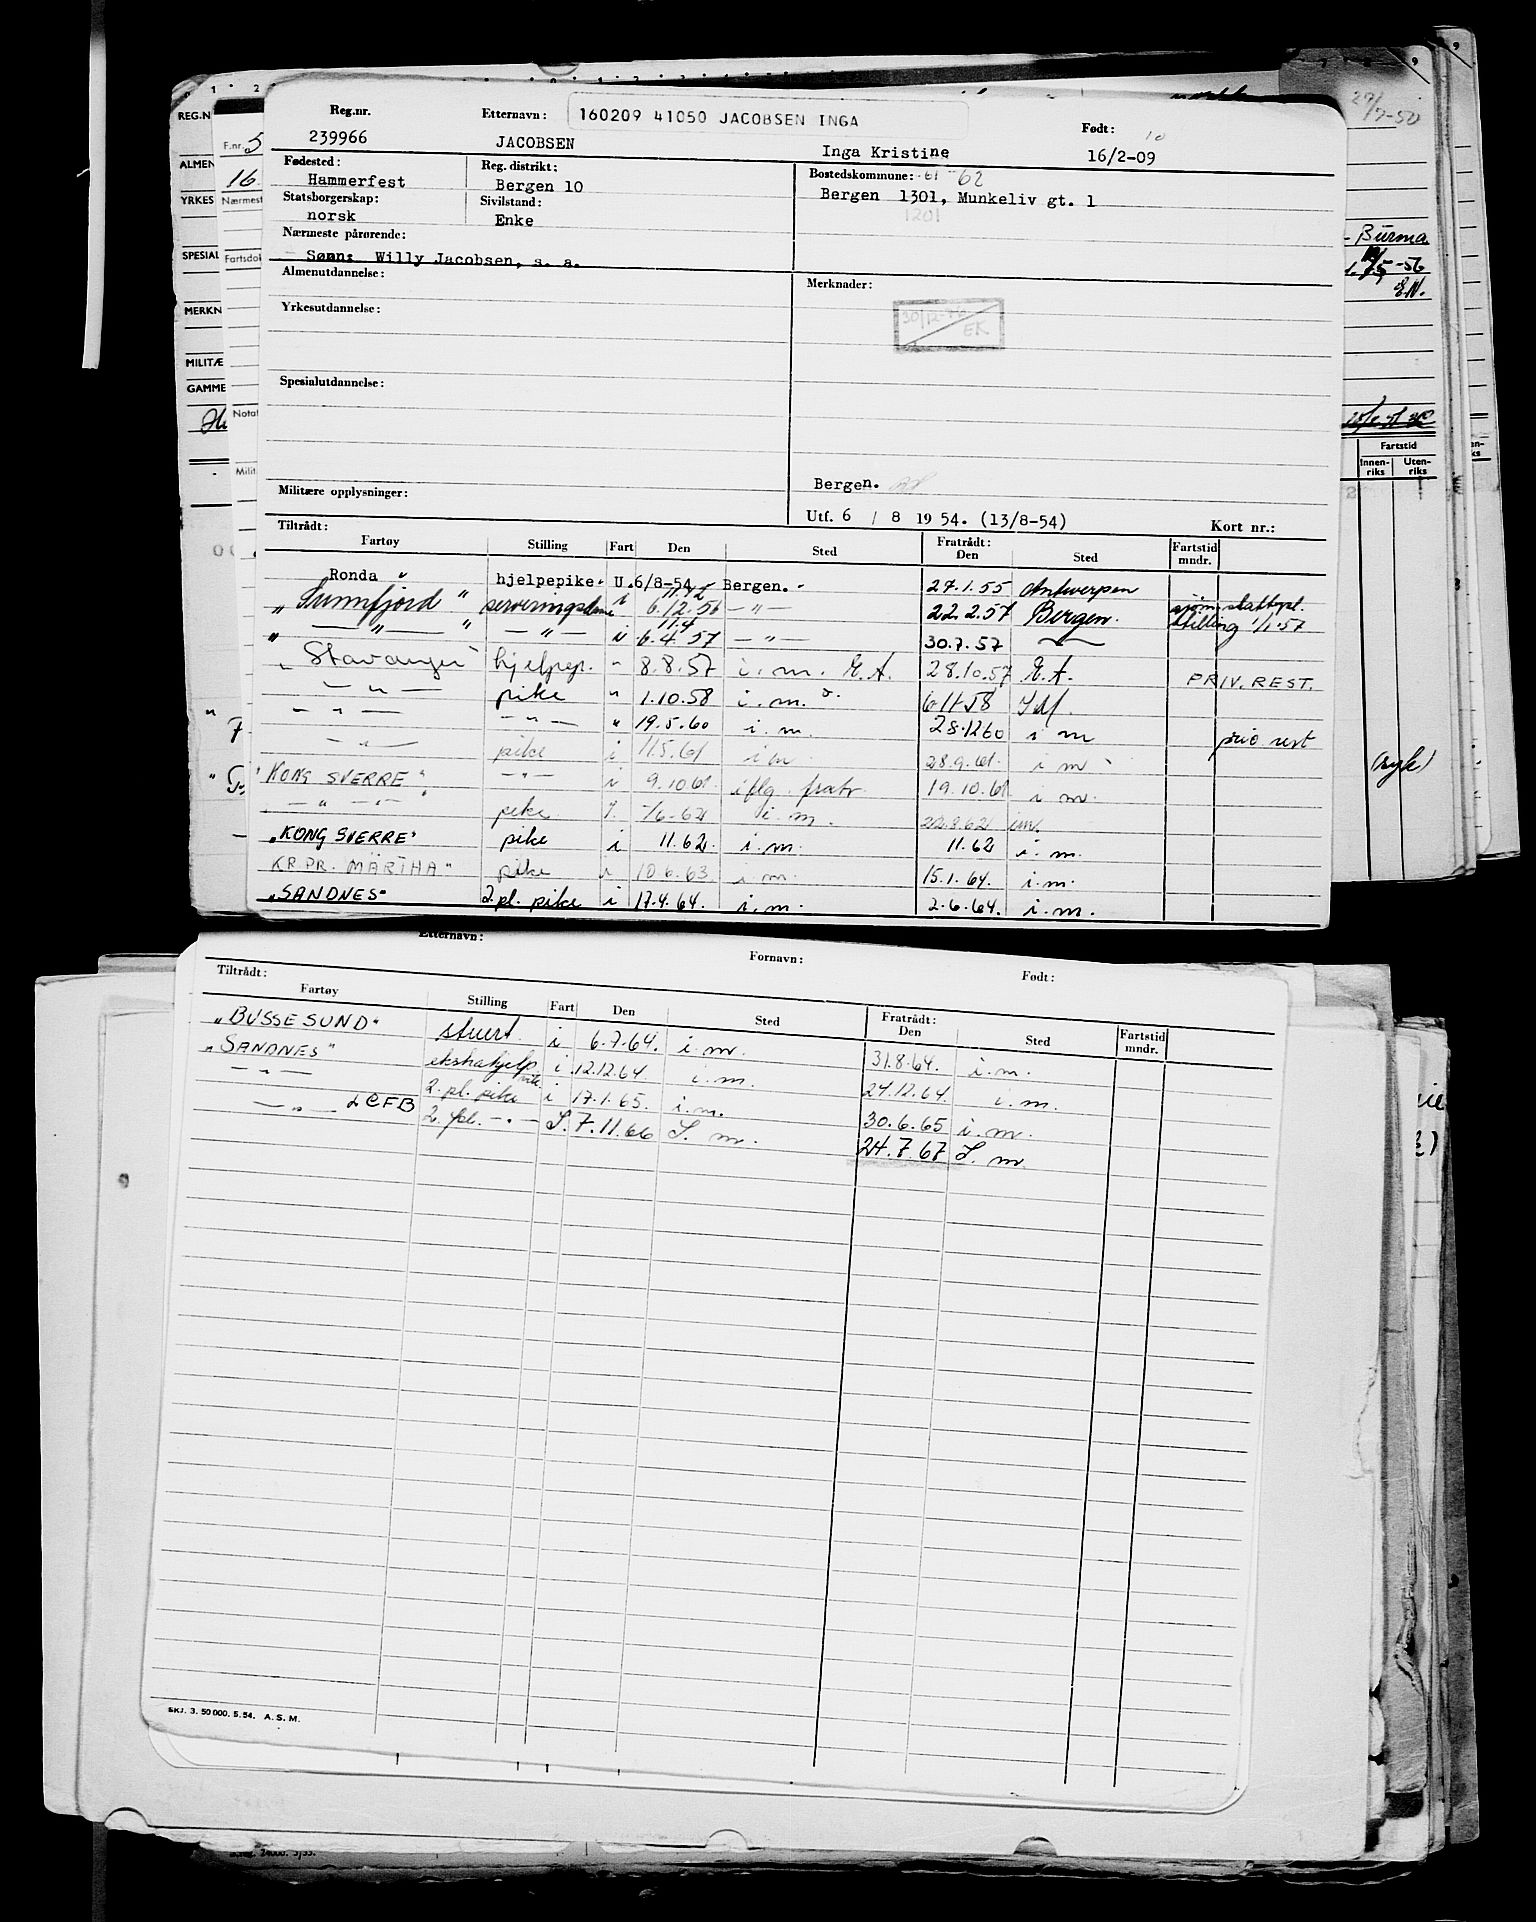 Reg.nr. Etternavn: 160209 41050 JACOBSEN INGA Født: 10
239966 JACOBSEN Inga Kristine 16/2-09
Fødested: Reg. distrikt: Bostedskommune: 61 - 62
Hammerfest Bergen 10 Bergen 1301, Munkeliv gt. 1
Statsborgerskap: Sivilstand: 1201
norsk Enke
Nærmeste pårørende:
Sønn: Willy Jacobsen, s. a.
Almenutdannelse: Merknader:
Yrkesutdannelse: EK
Spesialutdannelse:
Militære opplysninger: Bergen.
Utf. 6 / 8 19 54. (13/8-54) Kort nr.:
Tiltrådt: Fratrådt: Fartstid
Fartøy Stilling Fart Den Sted Den Sted mndr.
Ronda " hjelpepike. U. 6/8-54 Bergen. 27.1.55 Antwerpen
" Sunnfjord " serveringsdame i 6.12.56 — " — 22.2.57 Bergen. stilling 1/1 57
" — " — " — " — i 6.4.57 — " — 30.7.57
" Stavanger " hjelpep. " 8.8.57 i. m. E.A. 28.10.57 E.A. PRIV. REST.
— " — pike " 1.10.58 i. m. 6 11 58 I M.
— " — — " — " 19.5.60 i. m. 28.12 60 i m priv rest
— " — pike i 11.5.61 i m 28.9.61. i m
" KONG SVERRE " — " — i 9.10 61. i flg. fratr 19.10.61 i m.
— " — pike i. m. 22.8.62 i m.
"KONG SVERRE" pike i 11.62. i. m. 11.62 i. m.
KR.PR. MÄRTHA" pike i 10.6.63. i. m. 15.1.64. i. m.
"SANDNES" 2.pl. pike i 17.4.64. i. m. 2.6.64. i. m.
Etternavn: Fornavn: Født:
Tiltrådt: Fratrådt: Fartstid
Fartøy Stilling Fart Den Sted Den Sted mndr.
"BUSSESUND" stuert. i 6.7.64. i. m. 31.8.64. i. m.
"SANDNES" ekstrahjelp i 12.12.64. i. m. 24.12.64. i. m.
— " — 2. pl. pike i 17.1.65. i. m. 30.6.65 i. m.
— " — LCFB 2. pl. — " — I. 7.11.66 I. m. 24.7.67 I. m
SKJ. 3. 50 000. 5. 54. A. S. M.
REG.N
ALMEN
YRKES
SPESIAL
MERKN
MILITÆ
GAMME
F.nr.
16.
Nærmest
Fartsdok
Notat
Milit
- Burma
Fartstid
Innen-riks Uten-riks